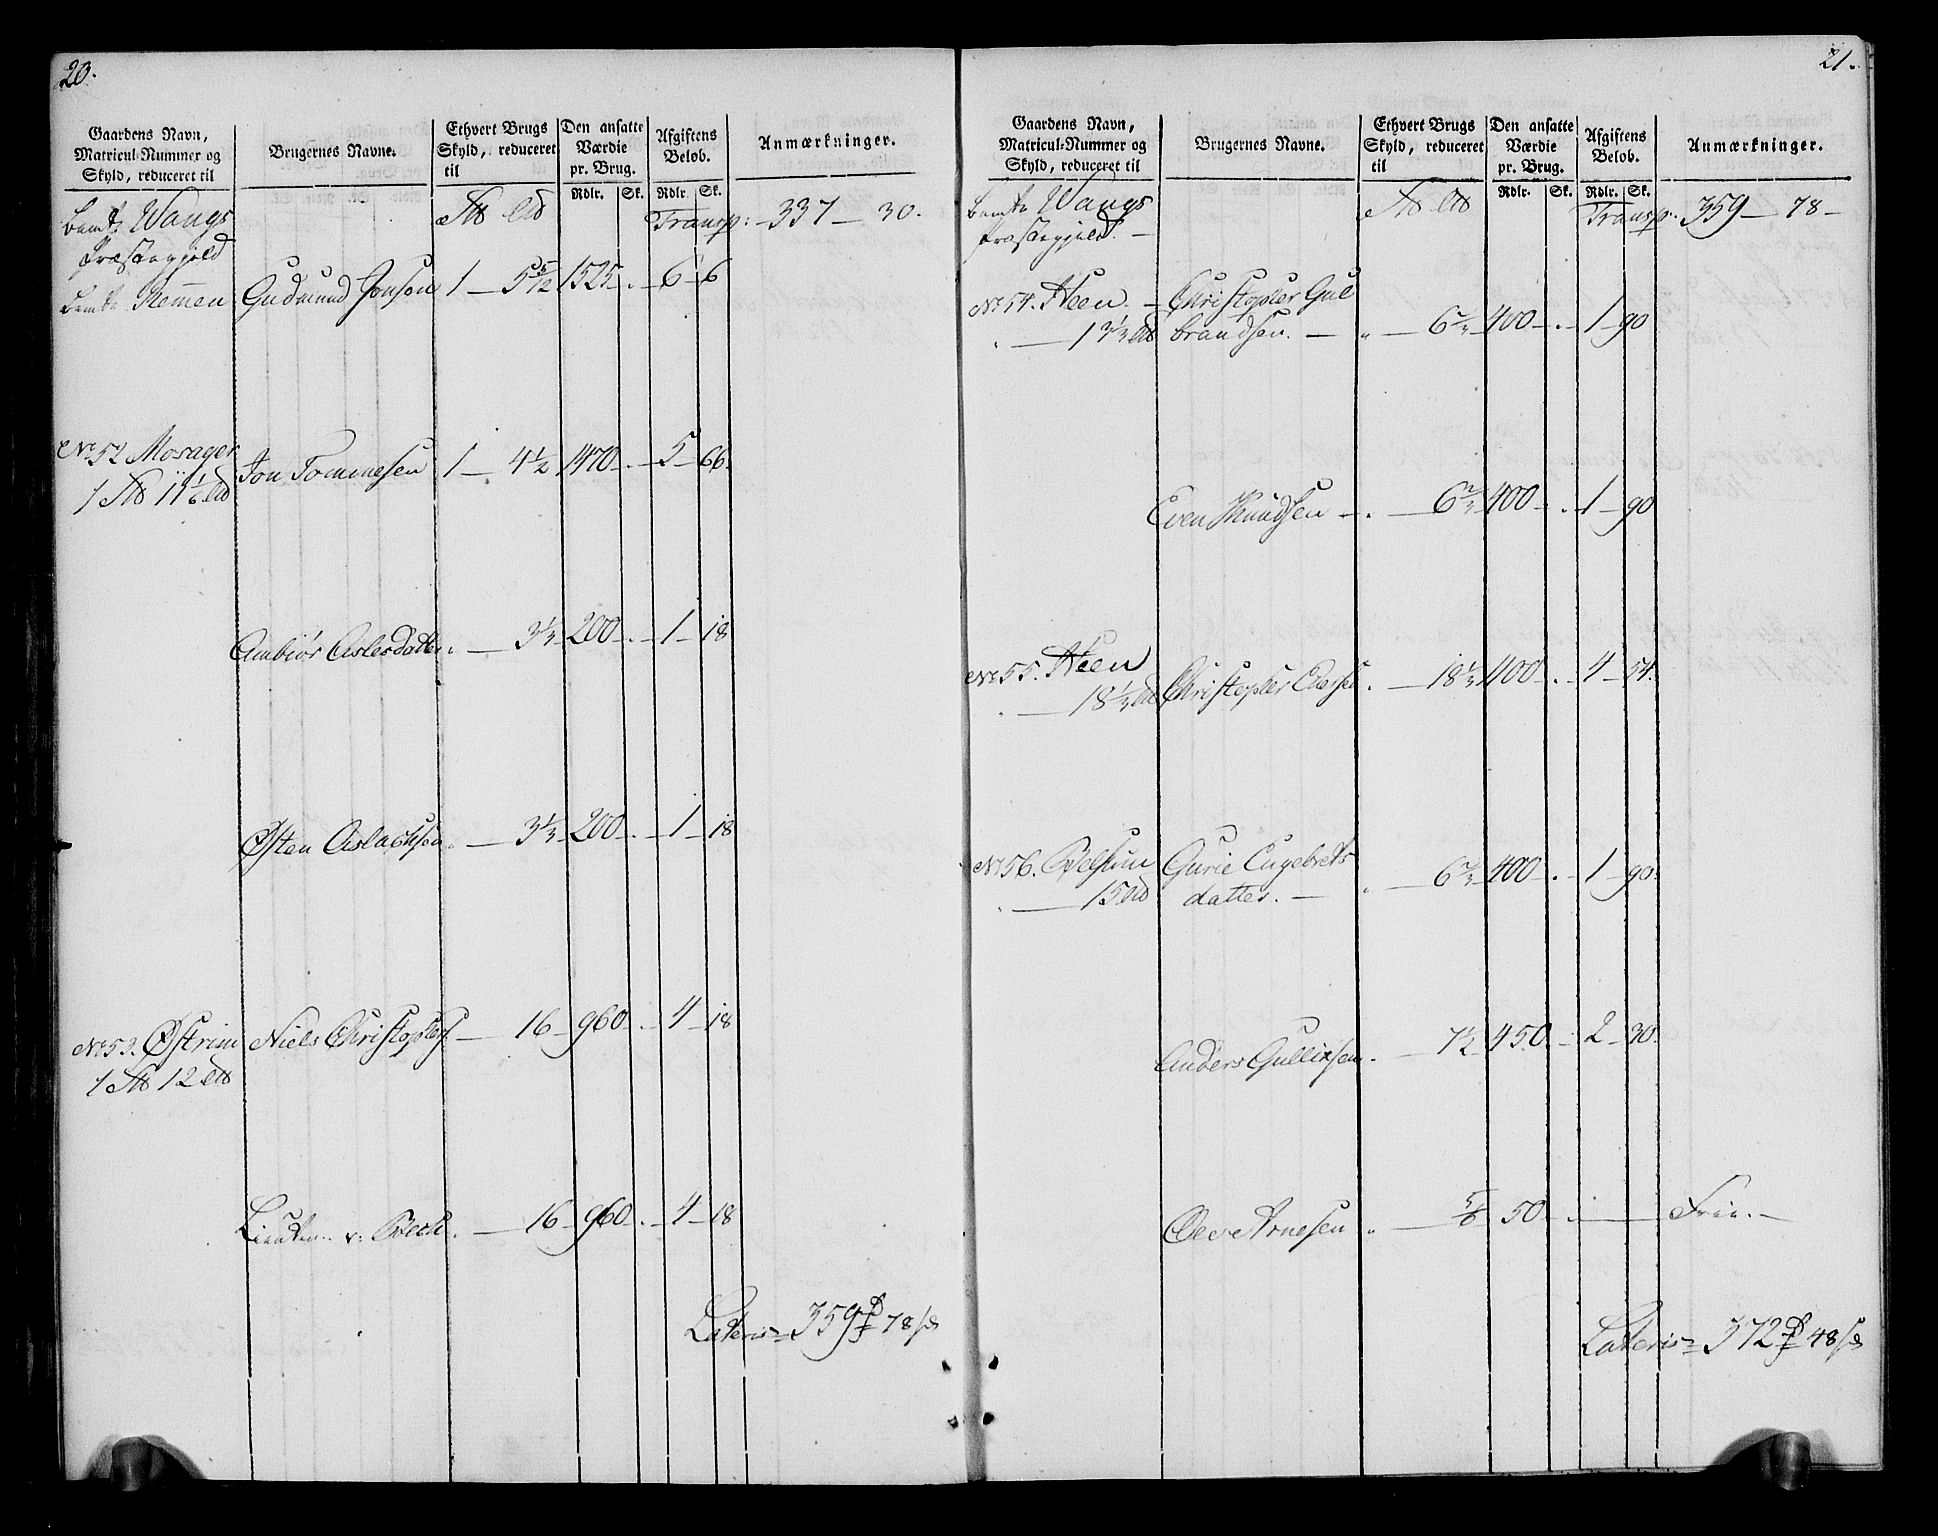 20.
Gaardens Navn, Matricul-Nummer og Skyld, reduceret til
Brugernes Navne.
Ethvert Brugs Skyld, reduceret til
Den ansatte Værdie pr. Brug.
Rdlr. Sk.
Afgiftens Beløb.
Rdlr. Sk.
Anmærkninger.
bemte Wangs
Præstegield
Transp: 337 — 30.
bemte Remmen Gudmund Jonsen 1 — 5 5/12 1525 . 6 — 6
No 52 Mosager Jon Tommesen 1 — 4 1/2 1470 . 5 — 66
1 11 1/6
Ambiør Aslesdatter . — 3 1/3 200 . 1 — 18
Østen Aslachsen . — 3 1/3 200 . 1 — 18
No 53. Østrim Niels Christophers — 16 960 . 4 — 18
1 12
Lieuten. v: Beck . — 16 960 . 4 — 18
Lateris = 359 78
21.
Gaardens Navn, Matricul-Nummer og Skyld, reduceret til
Brugernes Navne.
Ethvert Brugs Skyld, reduceret til
Den ansatte Værdie pr. Brug.
Rdlr. Sk.
Afgiftens Beløb.
Rdlr. Sk.
Anmærkninger.
bemte Wangs
Præstegield. —
Transp. 359 — 78 —
No 54. Heen. — Christopher Gul
1 3 1/3 brandsen. — " — 6 2/3 400 . 1 — 90
Even Knudsen — . — 6 2/3 400 . 1 — 90
No 55. Heen
18 1/3 Christopher . — 18 1/3 1100 . 4 — 54.
No 56. Gurie Engebrets
15 datter. — " — 6 2/3 400 . 1 — 90.
Anders Gullixsen . — 7 1/2 450 . 2 — 30.
Ole Arnesen " — 5/6 50 . — Frie. —
Lateris = 372 48